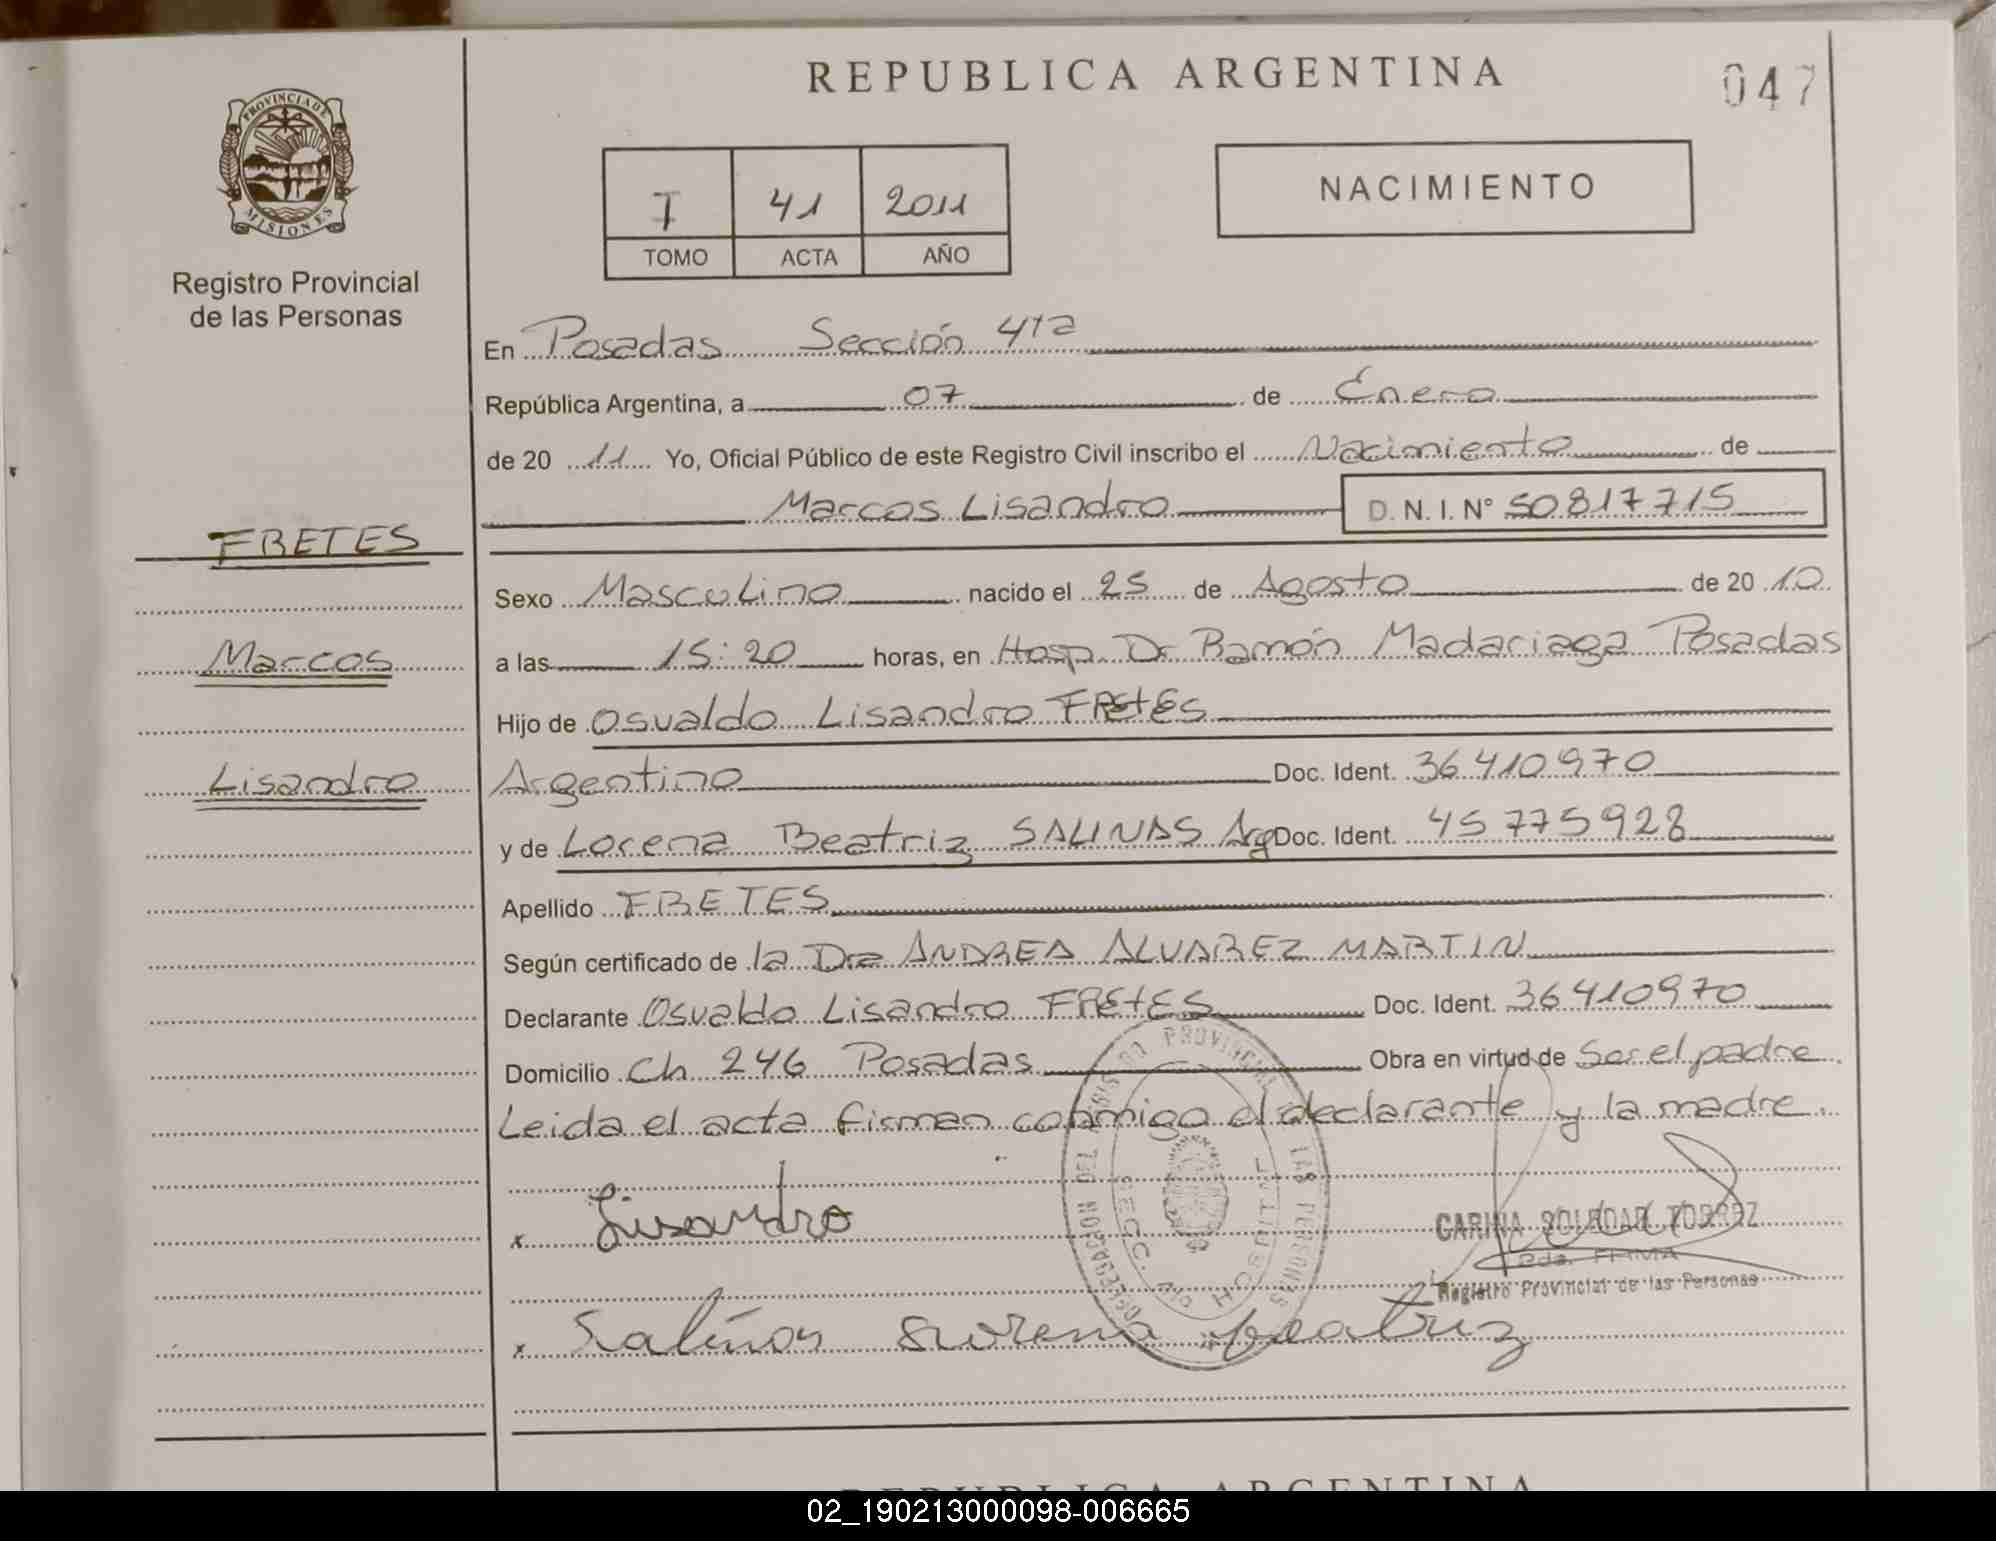 REPUBLICA ARGENTINA
047
PROVINCIA DE MISIONES
Registro Provincial
de las Personas
I 41 2011
TOMO ACTA AÑO
NACIMIENTO
En Posadas Sección 4ta
República Argentina, a 07 de Enero
de 20 11 Yo, Oficial Público de este Registro Civil inscribo el Nacimiento de
Marcos Lisandro D. N. I. N° 50817715
FRETES
Marcos
Lisandro
Sexo Masculino nacido el 25 de Agosto de 20 10
a las 15:20 horas, en Hosp. Dr Ramón Madariaga Posadas
Hijo de Osvaldo Lisandro FREtES
Argentino Doc. Ident. 36.410970
y de Lorena Beatriz SALINAS Arg Doc. Ident. 45775928
Apellido FRETES
Según certificado de la Dra ANDREA ALVAREZ MARTIN
Declarante Osvaldo Lisandro FREtES Doc. Ident. 36410970
Domicilio Ch 246 Posadas Obra en virtud de Ser el padre
Leida el acta firman conmigo el declarante y la madre.
x Lisandro
CARINA SOLEDAD TORREZ
2da. FIRMA
Registro Provincial de las Personas
x Salinas Lorena beatriz
REPUBLICA ARGENTINA
02_190213000098-006665